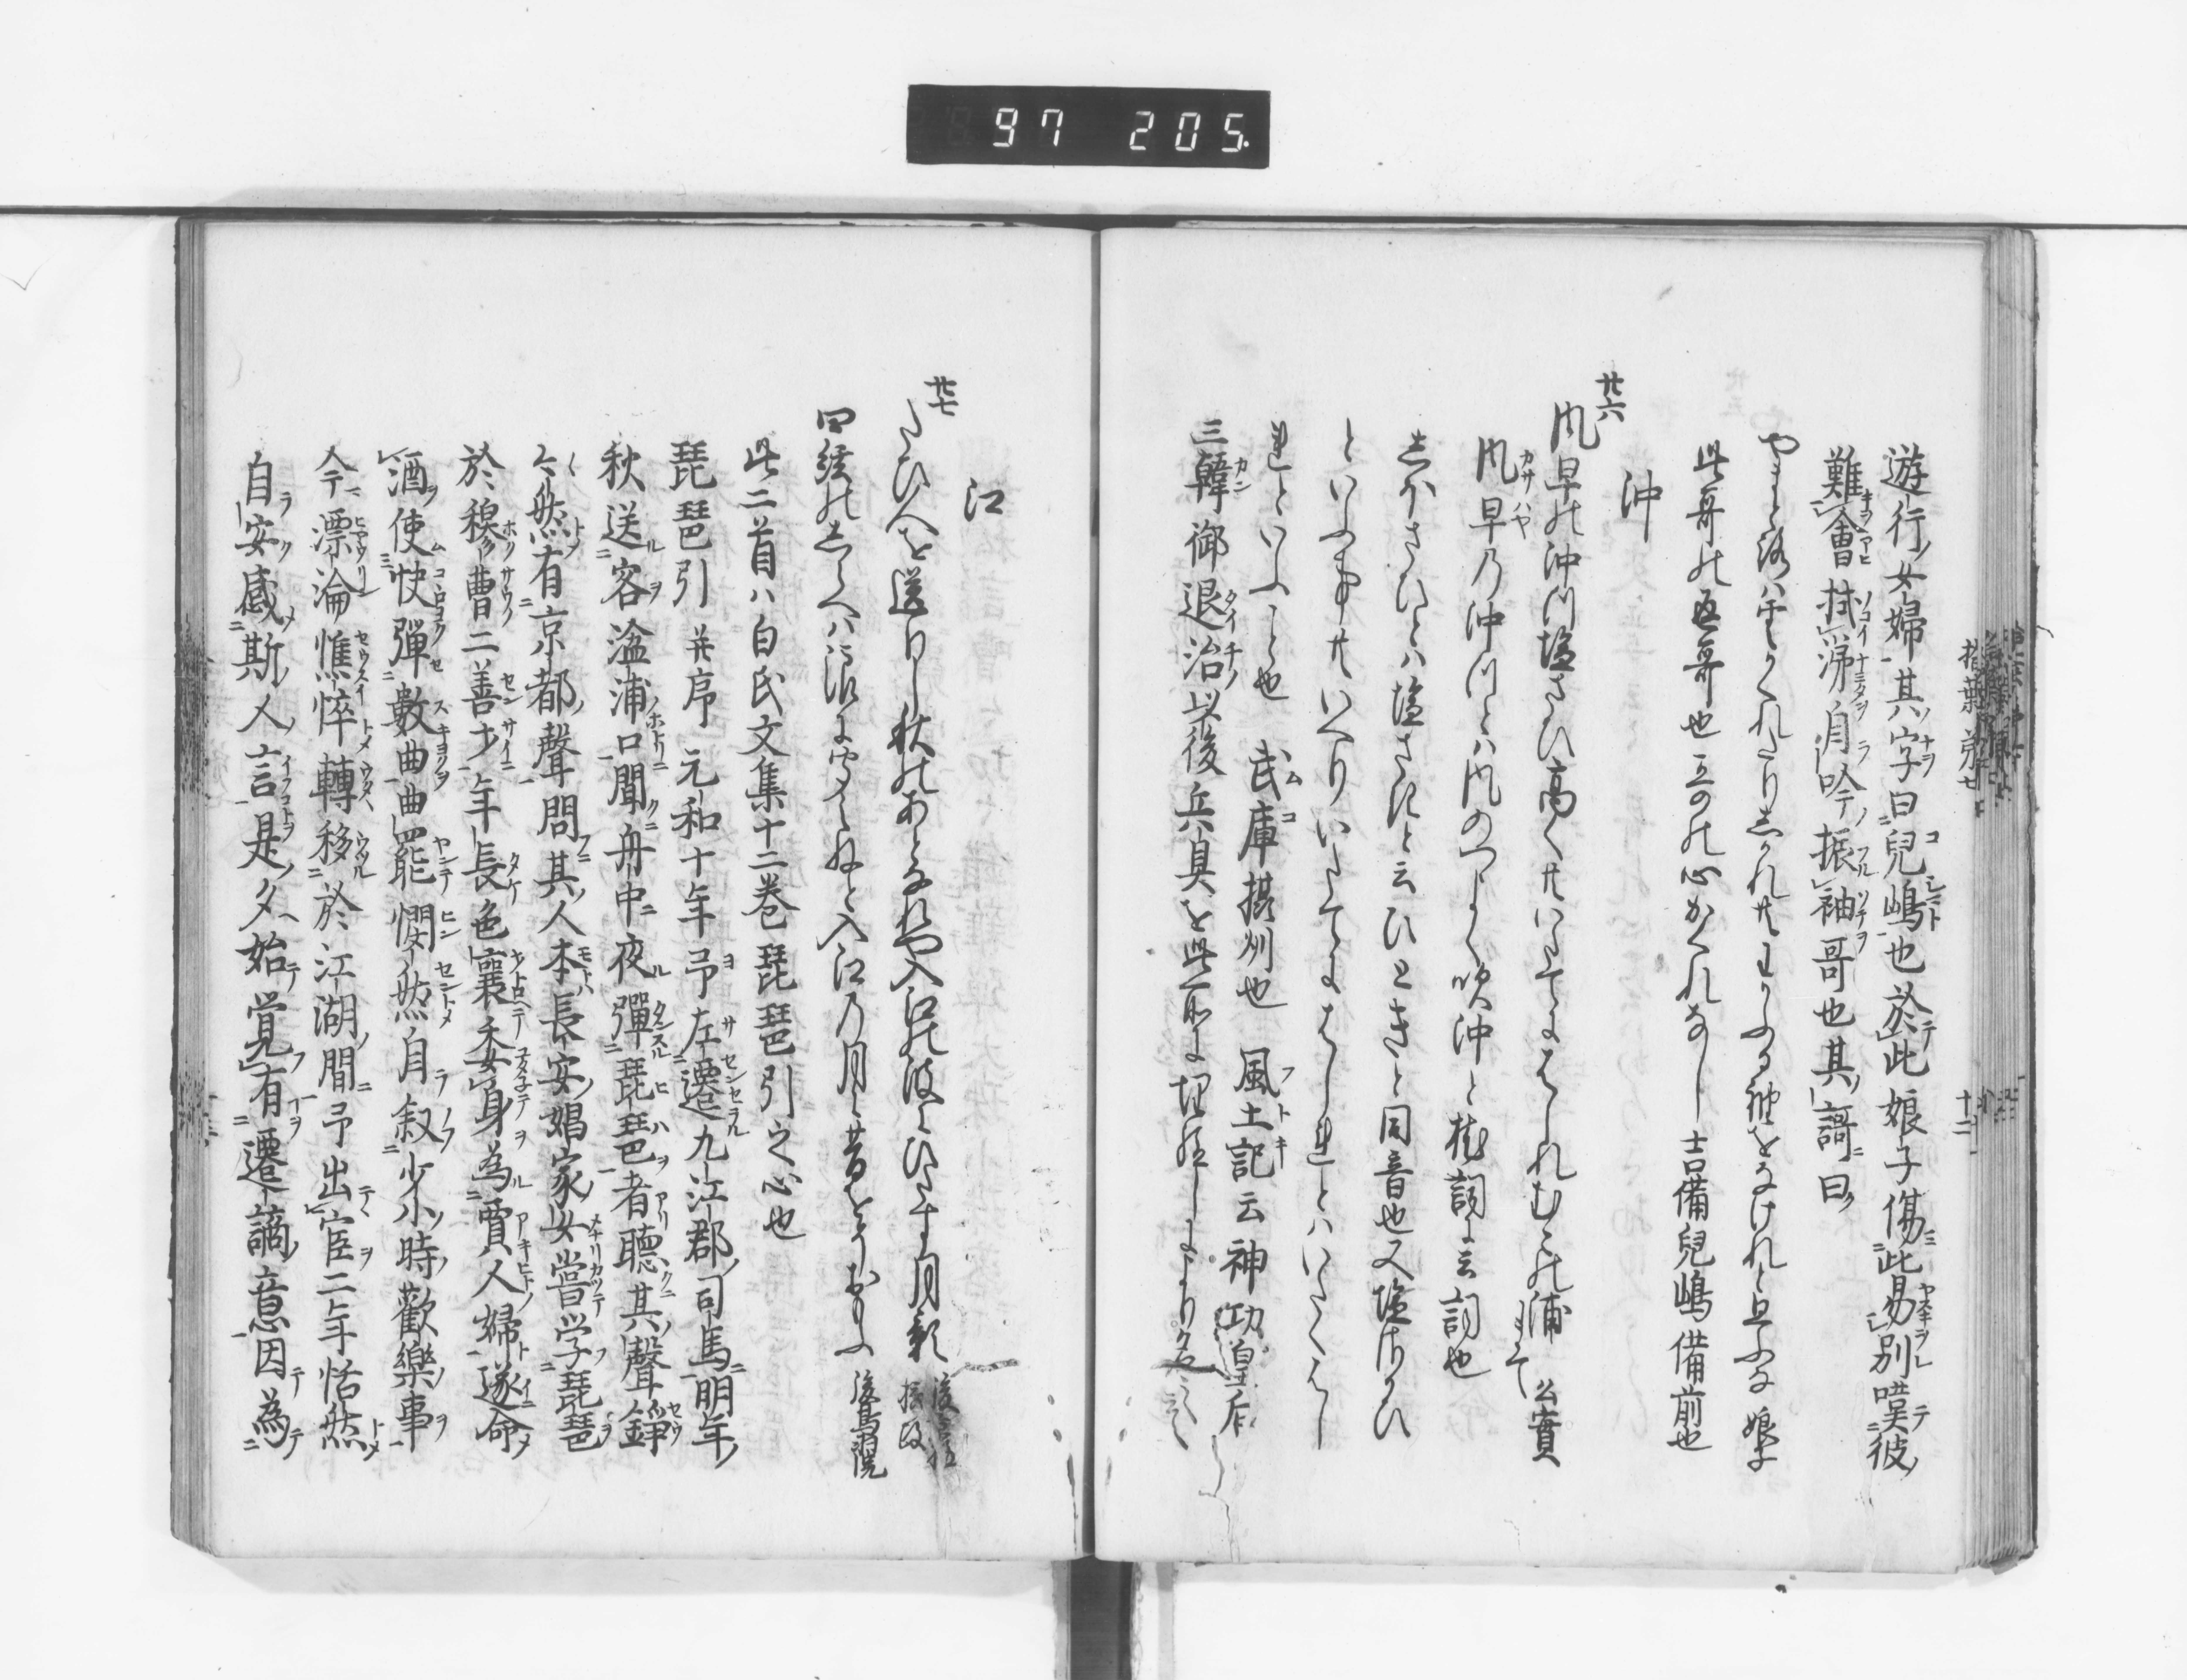 97 205.
遊行女婦其字曰兒嶋也於此娘子傷此易別嘆彼
難會拭涕自吟振袖哥也其謌曰
やまと路は雲かくれたりしかれ共わかふる袖をなけれと思ふな 娘子
此哥の返哥也哥の心かくれなし 吉備兒嶋備前也
沖
廿六
風早の沖つ塩さひ高く共いたてにはしれむこの浦まて 公實
風早乃沖つとは風のつよく吹沖と枕詞に云詞也
しほさひとは塩さきと云ひときと同音也又塩さかひ
といふ事共いへりいたてにはしれとはいたくはし
れといふこと也 武庫摂州也 風土記云神功皇后
三韓御退治以後兵具を此所に埋給しにより名之云々
江
廿七
こひ人を送りし秋のあとなれや入江の波にひたす月影
四絃のしらへは浪にやみぬと入江乃月に昔をそおもふ 後鳥羽院
此二首ハ白氏文集十二巻琵琶引之心也
琵琶引并序 元和十年予左遷九江郡司馬明年
秋送客湓浦口聞舟中夜彈琵琶者聽其聲錚
々然有京都聲問其人本長安娼家女嘗学琵琶
於穆曹二善才年長色衰委身為賈人婦遂命
酒使快彈數曲曲罷憫然自叙少小時歡樂事
今漂淪憔悴轉移於江湖間予出官二年恬然
自安感斯人言是夕始覚有遷謫意因為